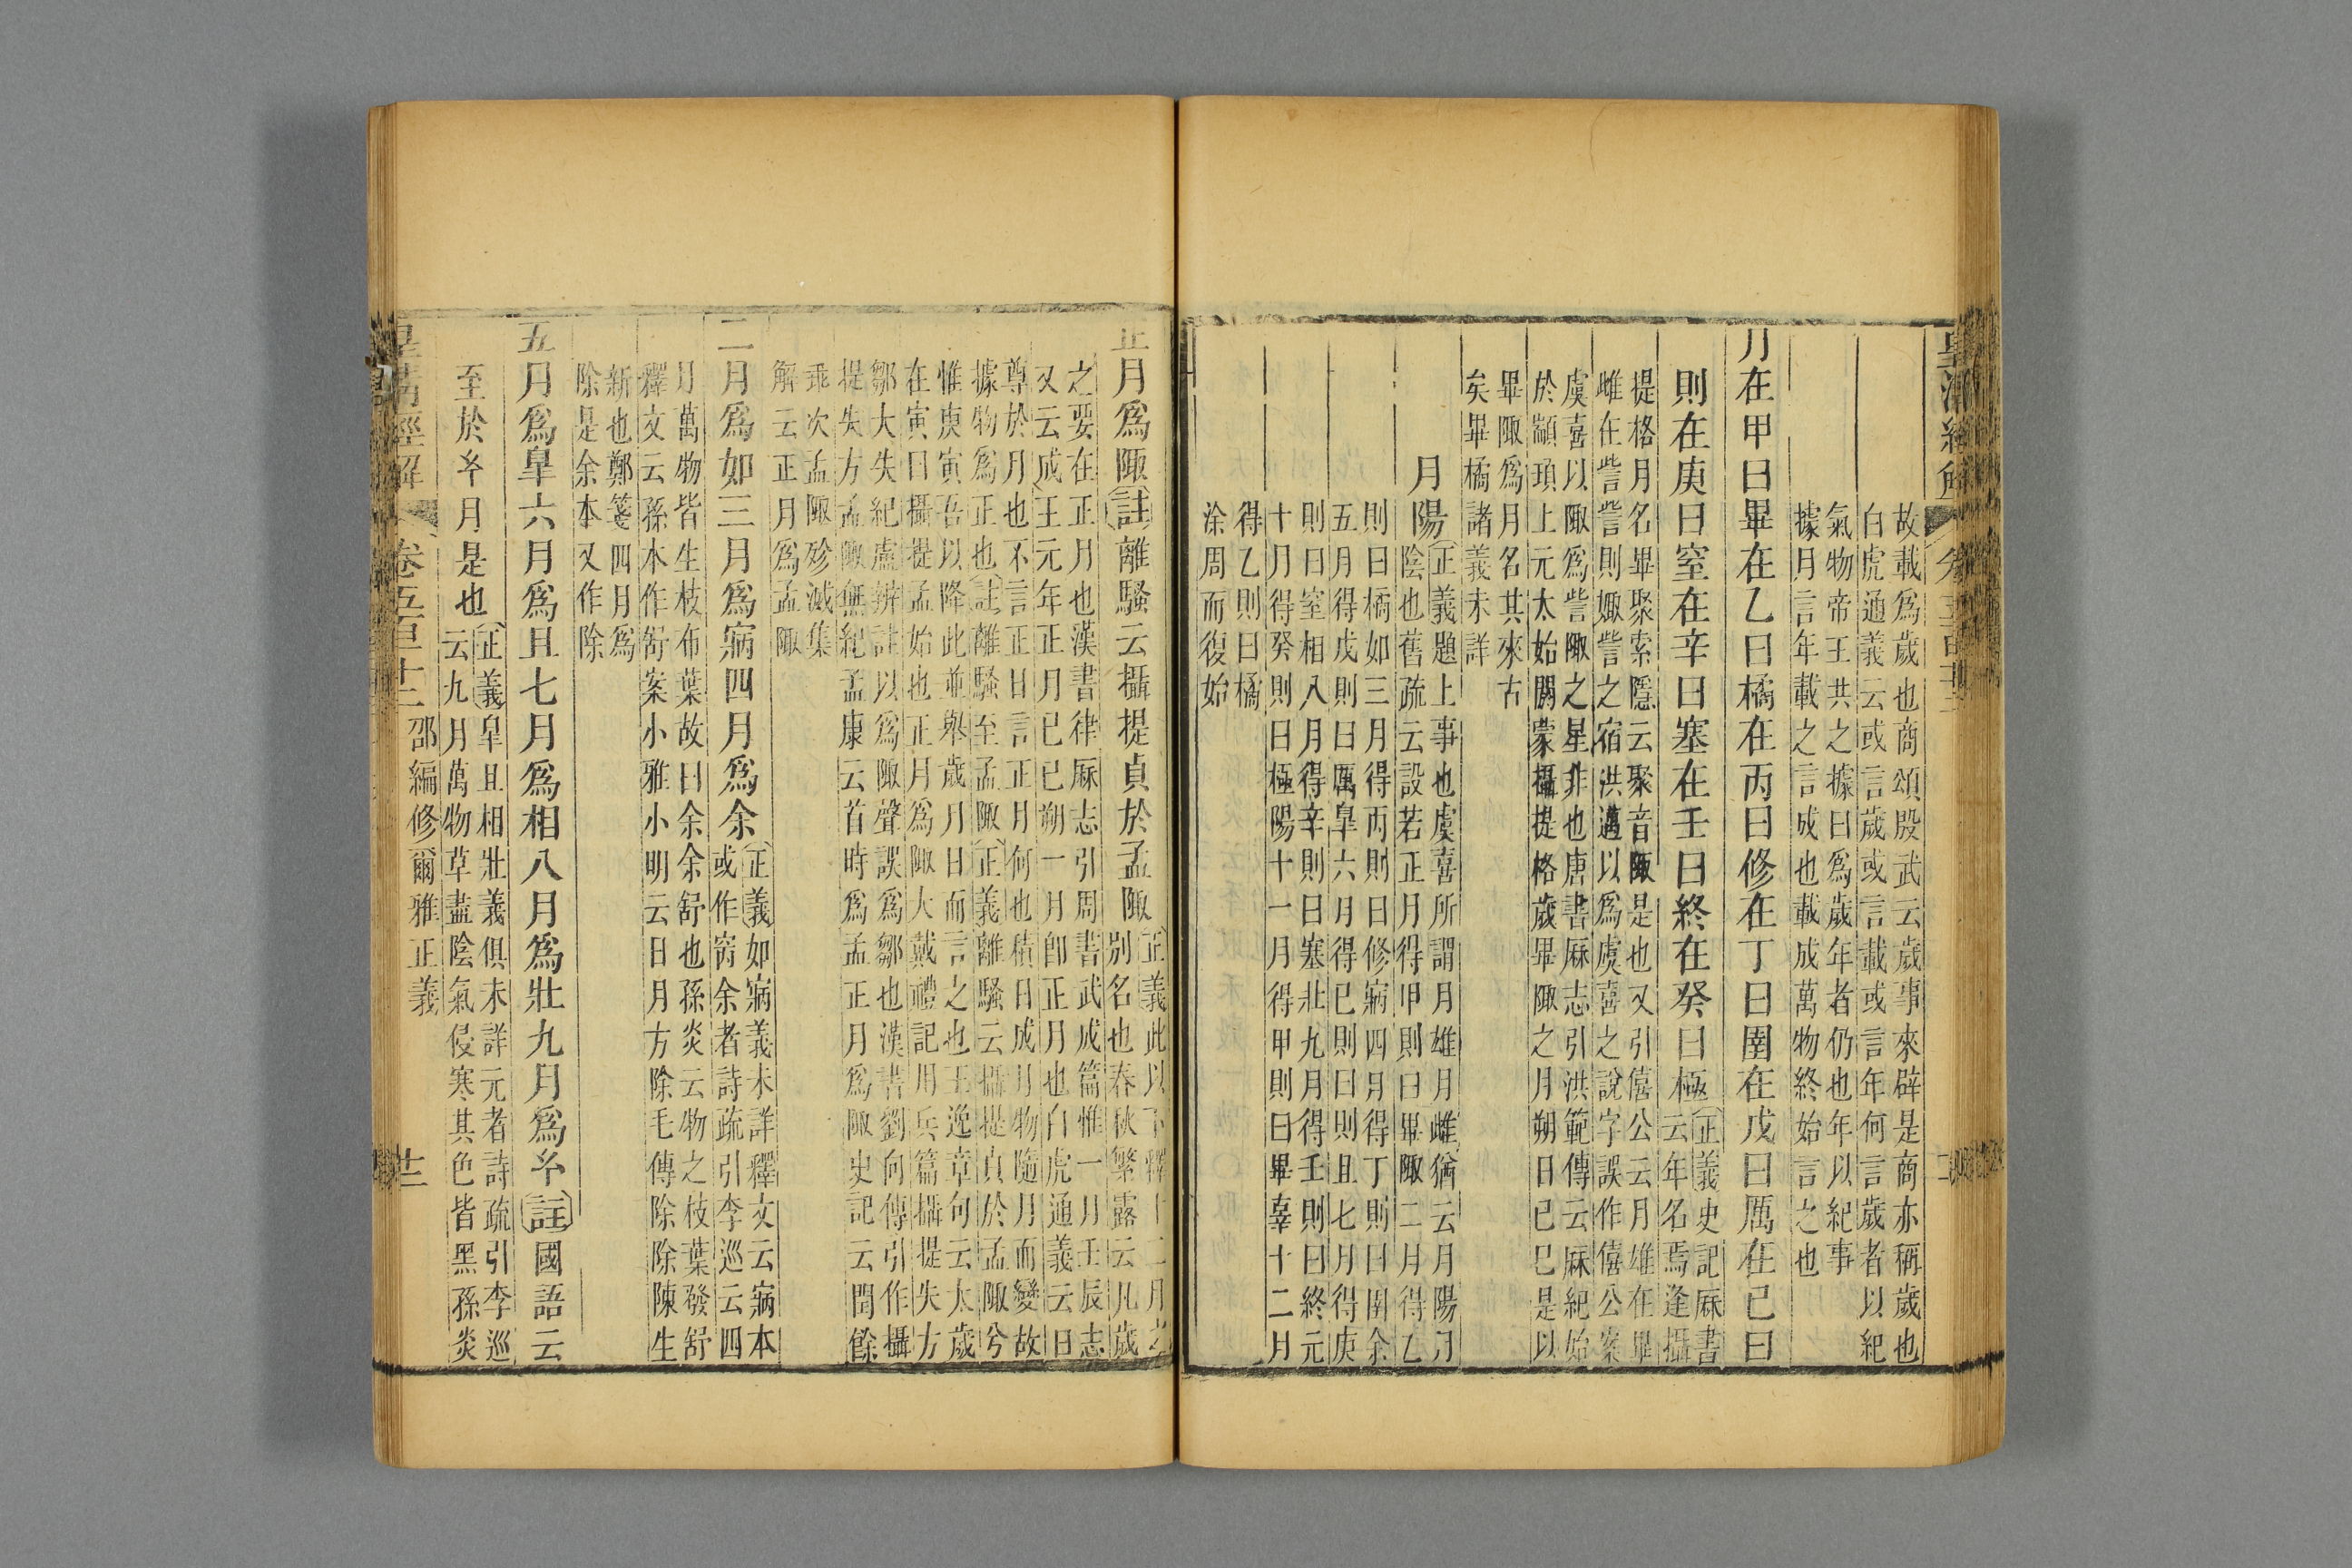 故載爲歲也商頌殷武云歲事來辟是商亦稱歲也
白虎通義云或言歲或言載或言年何言歲者以紀
氣物帝王共之據日爲歲年者仍也年以紀事
據月言年載之言成也載成萬物終始言之也
月在甲曰畢在乙曰橘在丙曰修在丁曰圉在戊曰厲在己曰
則在庚曰窒在辛曰塞在壬曰終在癸曰極
正義史記厤書
云年名焉逢攝
提格月名畢聚索隱云聚音陬是也又引僖公云月雄在畢
雌在訾訾則娵訾之宿洪邁以爲虞喜之說字誤作僖公案
虞喜以陬爲訾陬之星非也唐書厤志引洪範傳云厤紀始
於顓頊上元太始閼蒙攝提格歲畢陬之月朔日己巳是以
畢陬爲月名其來古
矣畢橘諸義未詳
月陽
正義題上事也虞喜所謂月雄月雌猶云月陽月
陰也舊疏云設若正月得甲則曰畢陬二月得乙
則曰橘如三月得丙則曰修寎四月得丁則曰圉余
五月得戊則曰厲皐六月得己則曰則且七月得庚
則曰窒相八月得辛則曰塞壯九月得壬則曰終元
十月得癸則曰極陽十一月得甲則曰畢辜十二月
得乙則曰橘
涂周而復始
正月爲陬註離騷云攝提貞於孟陬
正義此以下釋十二月之
別名也春秋繁露云凡歲
之要在正月也漢書律厤志引周書武成篇惟一月壬辰志
又云成王元年正月己巳朔一月卽正月也白虎通義云日
尊於月也不言正日言正月何也積日成月物隨月而變故
據物爲正也註離騷至孟陬正義離騷云攝提貞於孟陬兮
惟庚寅吾以降此並舉歲月日而言之也王逸章句云太歲
在寅曰攝提孟始也正月爲陬大戴禮記用兵篇攝提失方
鄒大失紀盧辨註以爲陬聲誤爲鄒也漢書劉向傳引作攝
提失方孟陬無紀孟康云首時爲孟正月爲陬史記云閏餘
乖次孟陬殄滅集
解云正月爲孟陬
二月爲如三月爲寎四月爲余
正義如寎義未詳釋文云寎本
或作窉余者詩疏引李巡云四
月萬物皆生枝布葉故曰余余舒也孫炎云物之枝葉發舒
釋文云孫本作舒案小雅小明云日月方除毛傳除除陳生
新也鄭箋四月爲
除是余本又作除
五月爲皐六月爲且七月爲相八月爲壯九月爲𤣥註國語云
至於𤣥月是也
正義皐且相壯義俱未詳元者詩疏引李巡
云九月萬物草盡陰氣侵寒其色皆黑孫炎
卷五百十二
邵編修爾雅正義